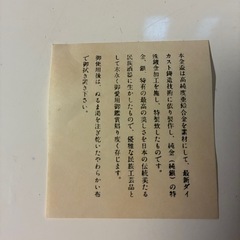 本金盃は高純度亜鉛合金を素材にして、最新ダイ
カスト鋳造技術に依り製作し、純金(純銀)の特
殊鍍金加工を施し、特製致したものです。
金、銀、特有の最高の美しさを日本の伝統美たる
民族酒器に生かしたもので、優雅な民族工芸品と
して末永く御愛用御鑑賞賜り度く存じます。
御使用後は、ぬるま湯を注ぎ乾いたやわらかい布
で御拭き下さい。